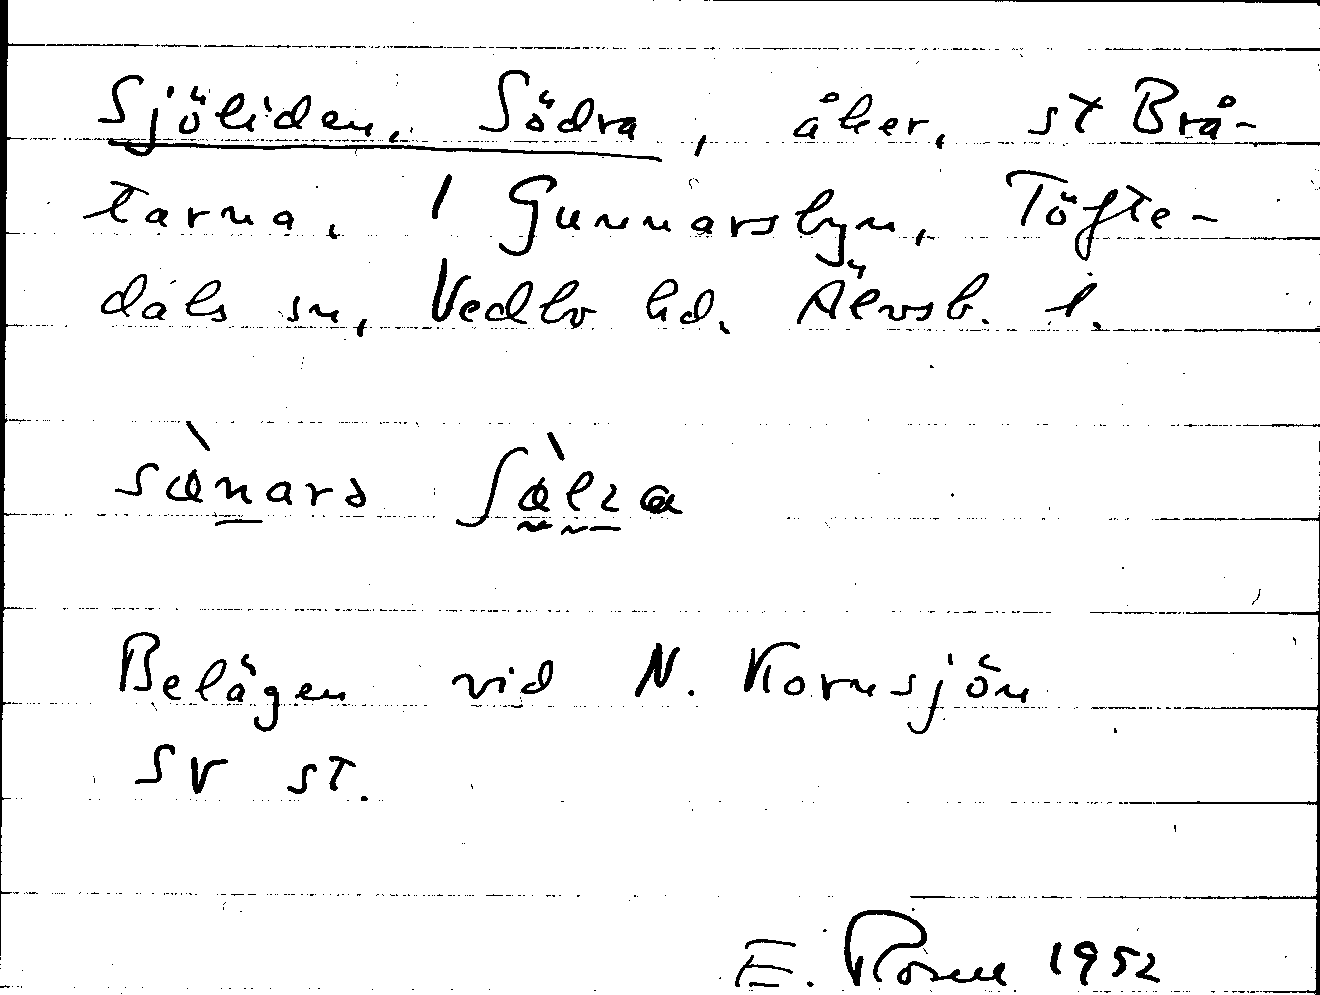 Sjöliden, Södra, åker, st Brå-
tarna, 1 Gunnarsbyn, Töfte-
dals sn, Vedbo hd. Älvsb. l.
sɑ̀narə ʃɑ̀lɩa
Belägen vid N. Kornsjön
SV st.
E. Rosell 1952